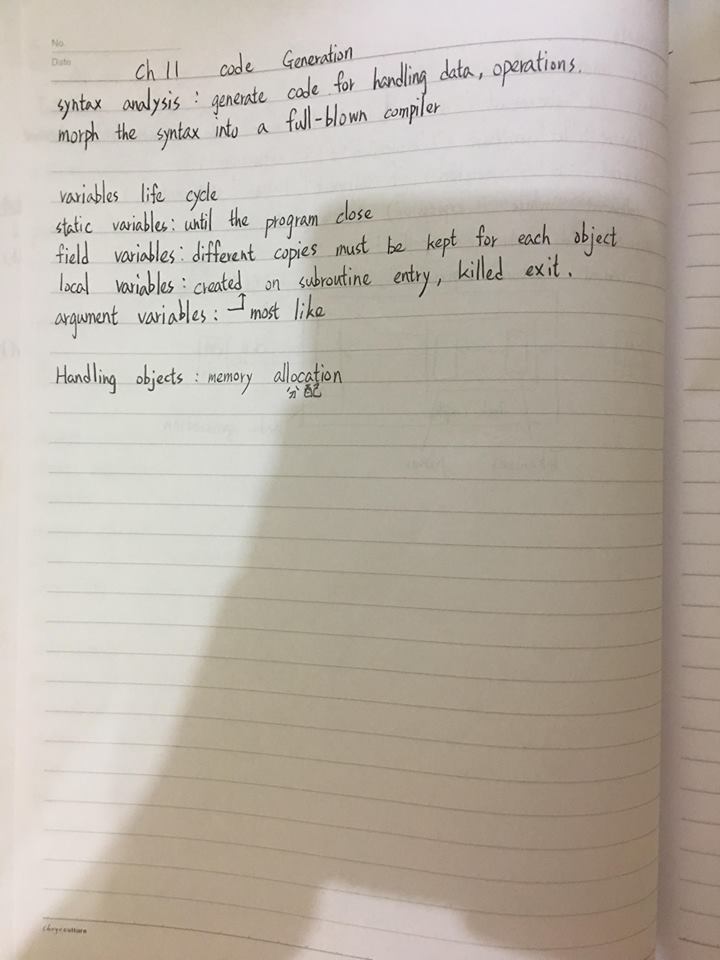 No.
Date
Ch 11 code Generation
syntax analysis : generate code for handling data, operations.
morph the syntax into a full-blown compiler
variables life cycle
static variables : until the program close
field variables : different copies must be kept for each object
local variables : created on subroutine entry, killed exit.
argument variables : most like
Handling objects : memory allocation
分配